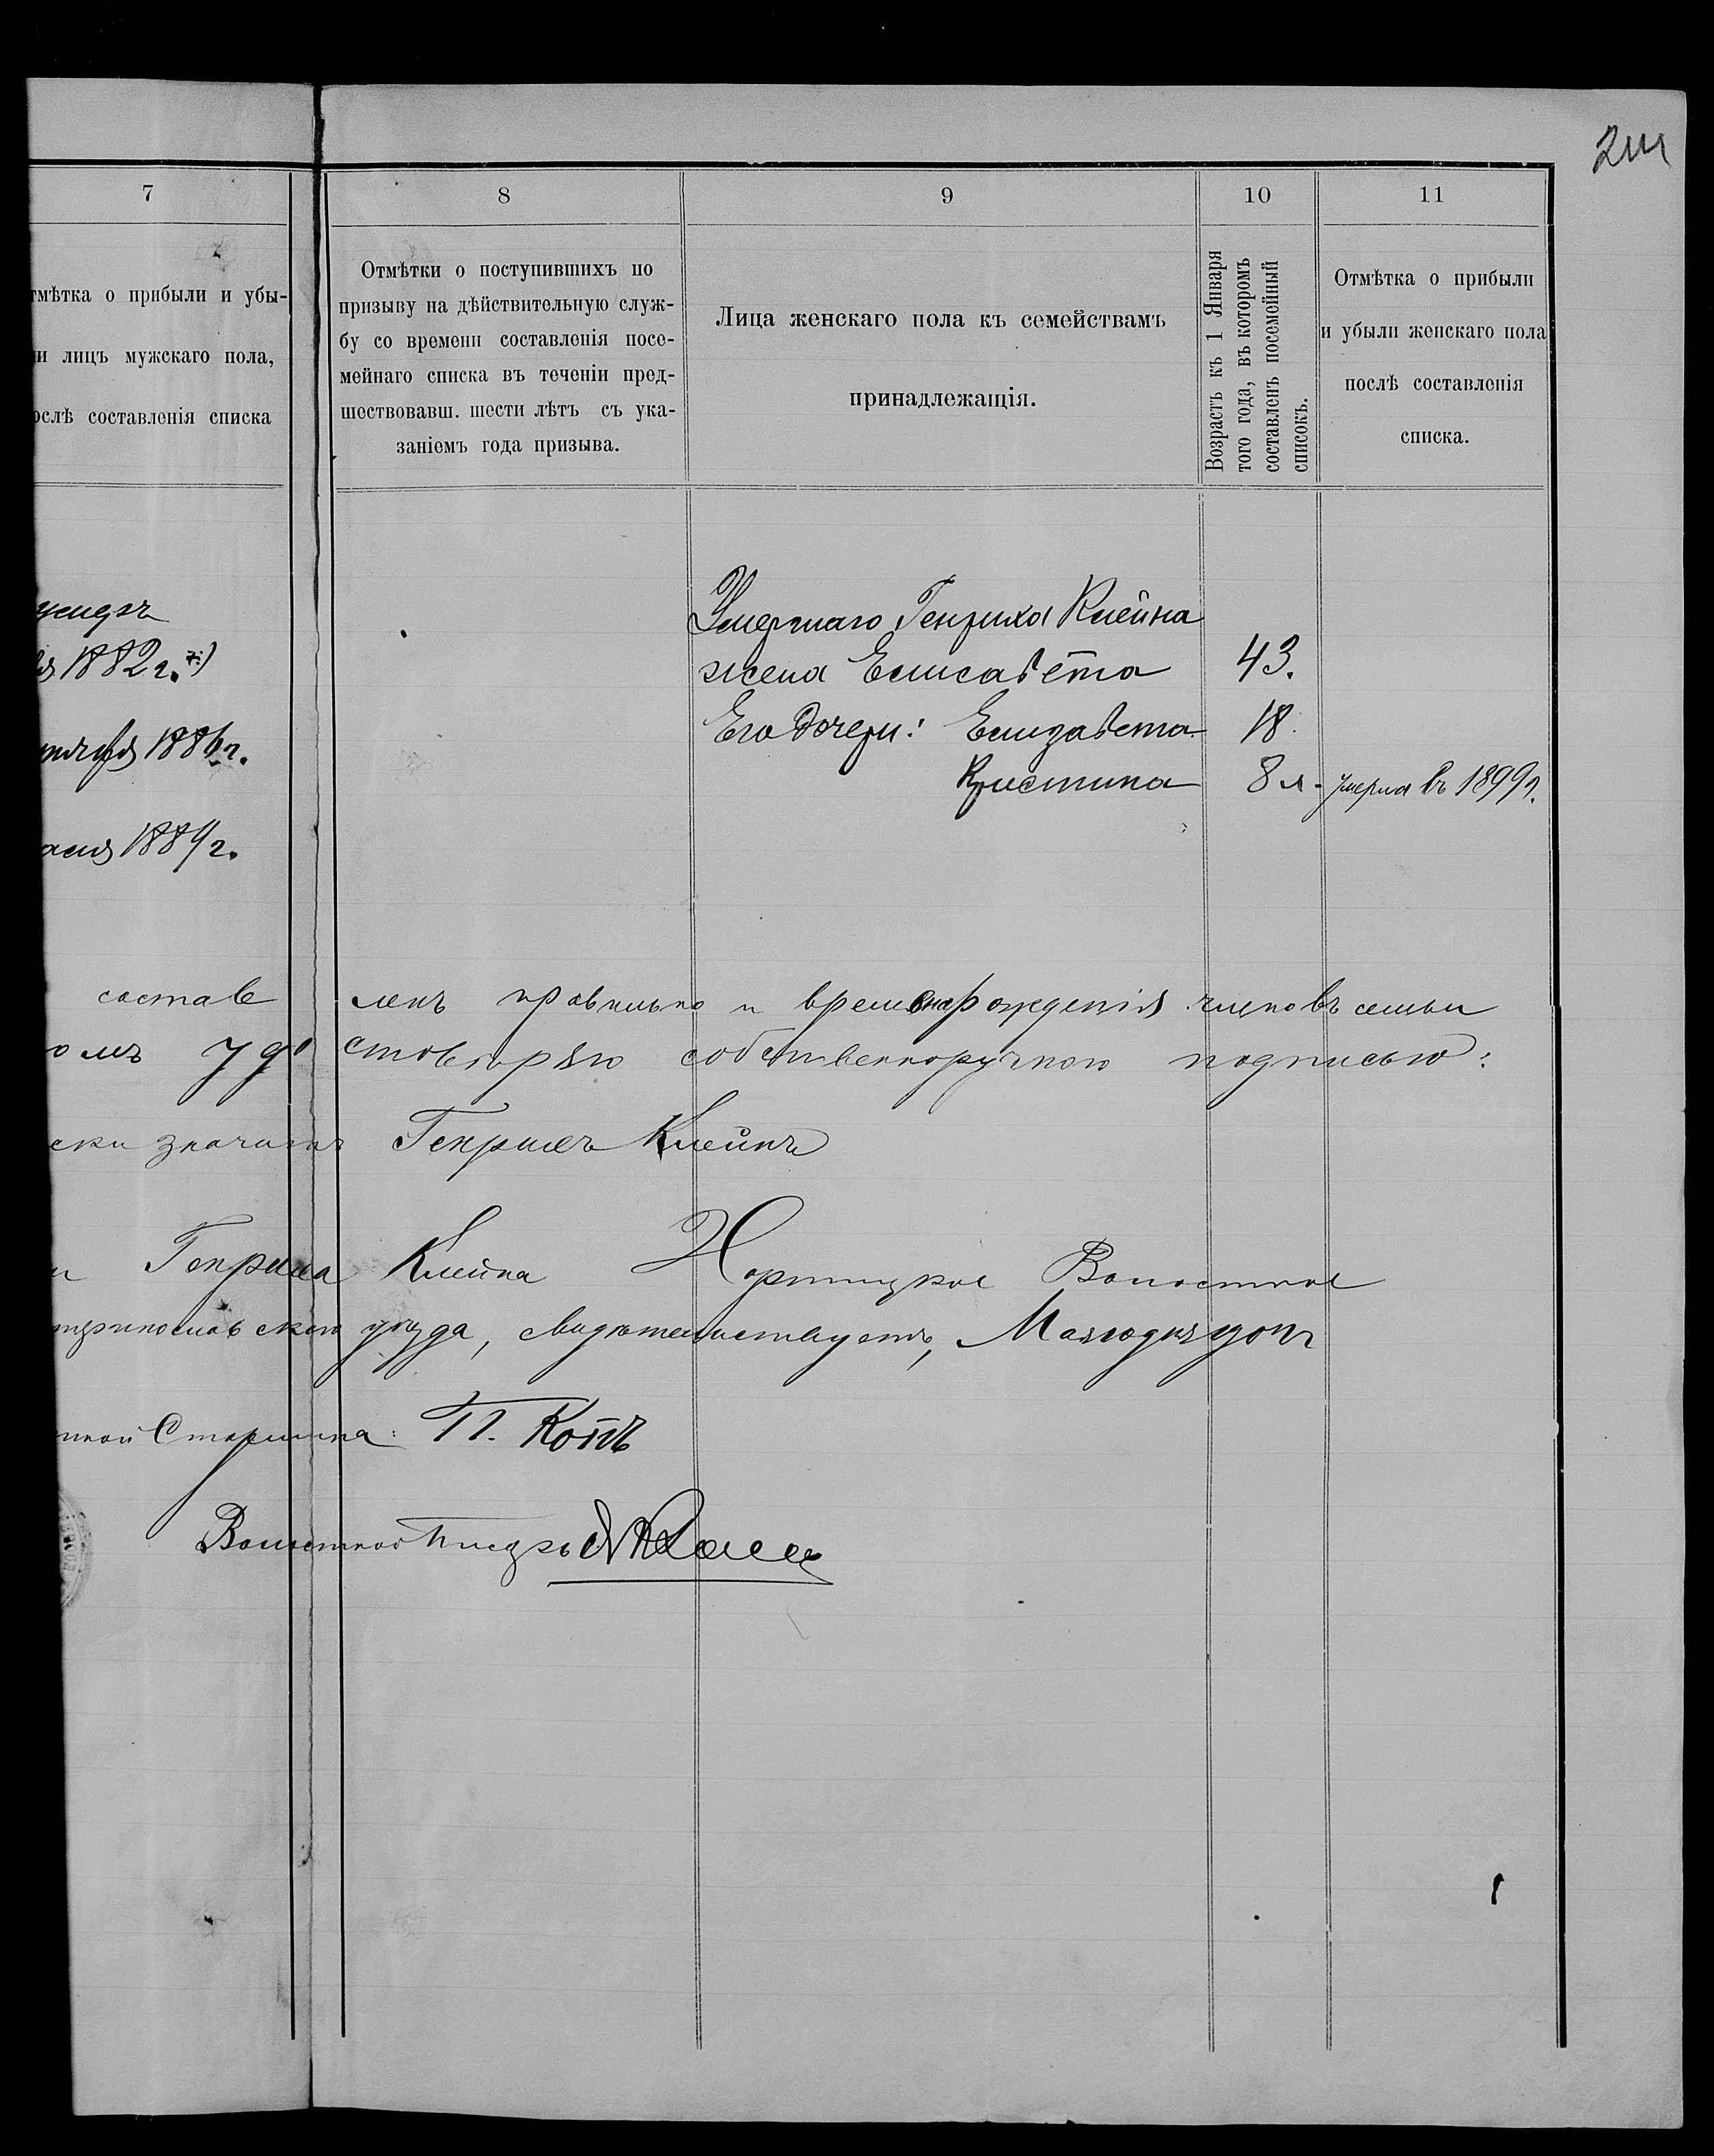 7
8
9
10
11
тмѣтка о прибыли и убы-
и лицъ мужскаго пола,
ослѣ составленія списка
Отмѣтки о поступившихъ по
призыву на дѣйствительную служ-
бу со времени составленія посе-
мейнаго списка въ теченіи пред-
шествовавш. шести лѣтъ съ ука-
заніемъ года призыва.
Лица женскаго пола къ семействамъ
принадлежащія.
Возрастъ къ 1 Января
того года, въ которомъ
составленъ посемейный
списокъ.
Отмѣтка о прибыли
и убыли женскаго пола
послѣ составленія
списка.
1882 г.
1886 г.
1889 г.
Умершаго Генриха Клейна
жена Елисавета 43.
Его дочери: Елизавета 18.
Кристина 8 л. умерла въ 1899 г.
составленъ правильно и время рожденія членовъ семьи
омъ удостовѣряю собственноручною подписью:
Генрихъ Клейнъ
Генриха Клейна Хортицкое Волостное
скаго уѣзда, свидѣтельствуетъ,
Старшина: П.
Волостной Писарь